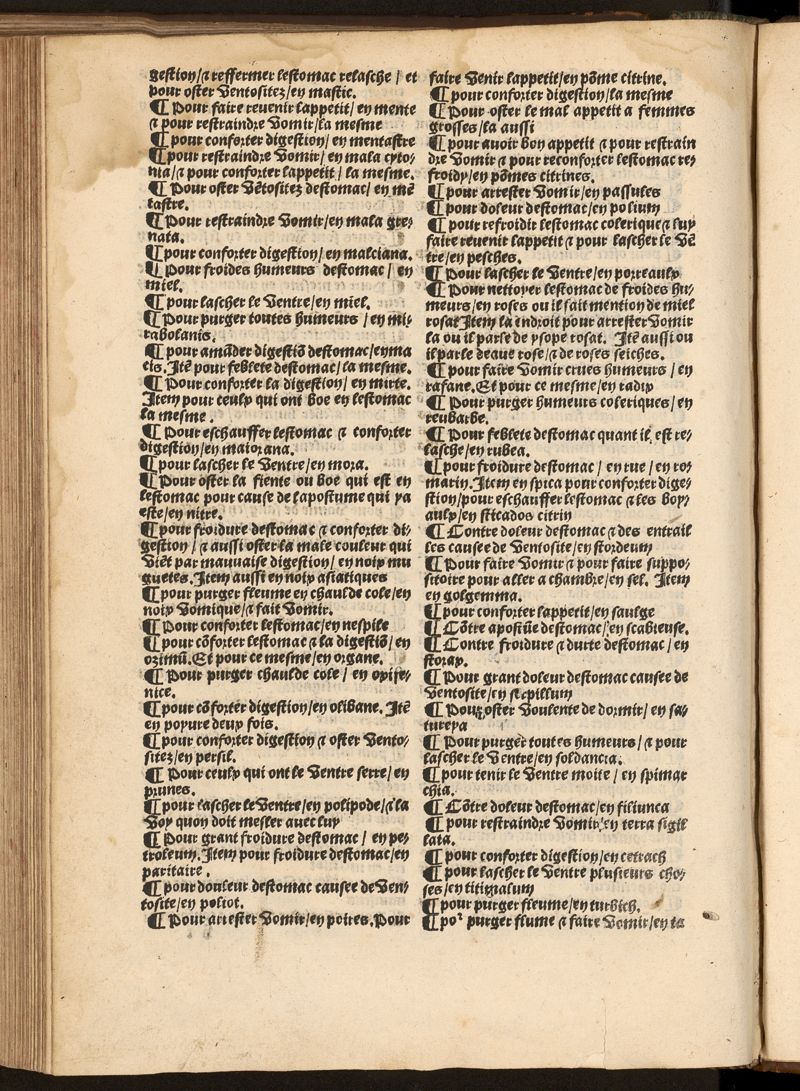 gestion/⁊ reffermer lestomac relasche / et
pour oster ventositez/en mastic.
¶ Pour faire reuenir lappetit/ en mente
⁊ pour restraindre vomir/la mesme
¶ pour conforter digestion/ en mentastre
¶ pour restraindre vomir/ en mala cyto-
nia/⁊ pour conforter lappetit / la mesme.
¶ Pour oster vẽtositez destomac/ en mẽ
tastre.
¶ Pour restraindre vomir/en mala gre-
nata.
¶ pour conforter digestion/ en malciana.
¶ Pour froides humeurs destomac / en
miel.
¶ pour lascher le ventre/en miel.
¶ Pour purger toutes humeurs / en mi-
rabolanis.
¶ pour amãder digestiõ destomac/en ma
cis. Itẽ pour feblete destomac/ la mesme.
¶ Pour conforter la digestion/ en mirte.
Item pour ceulx qui ont boe en lestomac
la mesme.
¶ Pour eschauffer lestomac ⁊ conforter
digestion/en maiorana.
¶ pour lascher le ventre/en mora.
¶ Pour oster la fiente ou boe qui est en
lestomac pour cause de lapostume qui ya
este/en nitre.
¶ pour froidure destomac ⁊ conforter di-
gestion / ⁊ aussi oster la male couleur qui
viẽt par mauuaise digestion/ en noix mu
guetes. Item aussi en noix asiatiques
¶ pour purger fleume en chaulde cole/en
noix vomique/⁊ fait vomir.
¶ Pour conforter lestomac/en nespile
¶ pour cõforter lestomac ⁊ la digestiõ/ en
ozimũ. Et pour ce mesme/en organe.
¶ Pour purger chaulde cole / en oxife-
nice.
¶ pour cõforter digestion/en olibane. Itẽ
en popure deux fois.
¶ pour conforter digestion ⁊ oster vento-
sitez/en persil.
¶ Pour ceulx qui ont le ventre serre/ en
prunes.
¶ pour lascher le ventre/en polipode/⁊ la
voy quon doit mesler auec luy
¶ Pour grant froidure destomac / en pe-
troleum. Item pour froidure destomac/en
paritaire.
¶ pour douleur destomac causee de ven-
tosite/en poliot.
¶ Pour arrester vomir/en poires. Pour
faire venir lappetit/en põme citrine.
¶ pour conforter digestion/la mesme
¶ Pour oster le mal appetit a femmes
grosses/la aussi
¶ pour auoir bon appetit ⁊ pour restrain
dre vomir ⁊ pour reconforter lestomac re-
froidy/en põmes citrines.
¶ pour arrester vomir/en passules
¶ pour doleur destomac/en polium
¶ pour refroidir lestomac colerique ⁊ luy
faire reuenir lappetit ⁊ pour lascher le vẽ
tre/en pesches.
¶ Pour lascher le ventre/en porreaulx
¶ Pour nettoyer lestomac de froides hu-
meurs/en roses ou il fait mention de miel
rosat Item la endroit pour arrester vomir
la ou il parle de ysope rosat. Itẽ aussi ou
il parle deaue rose/⁊ de roses seiches.
¶ pour faire vomir crues humeurs / en
rafane. Et pour ce mesme/en radix
¶ Pour purger humeurs coleriques/ en
reubarbe.
¶ Pour feblete destomac quant il est re-
lasche/en rubea.
¶ pour froidure destomac / en rue / en ro-
marin. Item en spica pour conforter dige-
stion/pour eschauffer lestomac ⁊ les boy-
aulx/en sticados citrin
¶ Contre doleur destomac ⁊ des entrail
les causee de ventosite/en stordeum
¶ Pour faire vomir ⁊ pour faire suppo-
sitoire pour aller a chambre/en sel. Item
en golgemma.
¶ pour conforter lappetit/en saulge
¶ Cõtre apostũe destomac/en scabieuse.
¶ Contre froidure ⁊ durte destomac/ en
storax.
¶ Pour grant doleur destomac causee de
ventosite/en serpillum
¶ Pour oster voulente de dormir/ en sa-
tureya
¶ Pour purger toutes humeurs/ ⁊ pour
lascher le ventre/en soldancia.
¶ pour tenir le ventre moite / en spimar
chia.
¶ Cõtre doleur destomac/en siliunca
¶ pour restraindre vomir/en terra sigil
lata.
¶ pour conforter digestion/en cetrach
¶ pour lascher le ventre plusieurs cho-
ses/en titimalum
¶ pour purger fleume/en turbich.
¶ po² purger flume ⁊ faire vomir/en ta